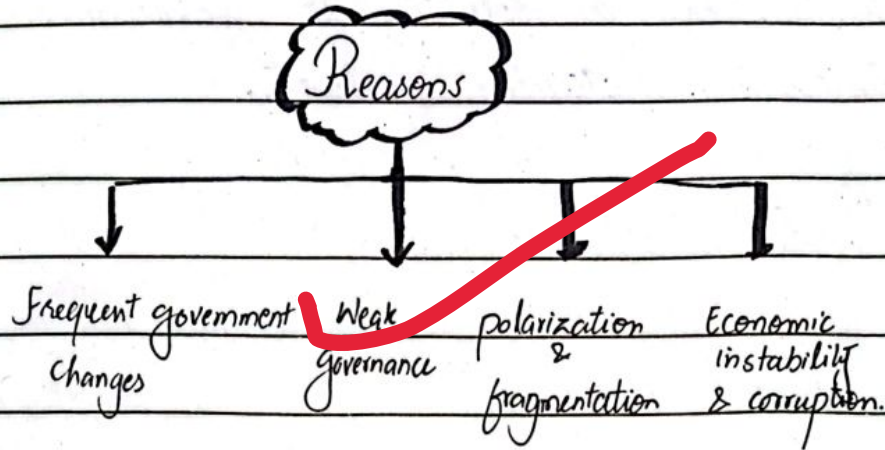 Reasons
Frequent government changes
Weak governance
polarization & fragmentation
Economic instability & corruption.